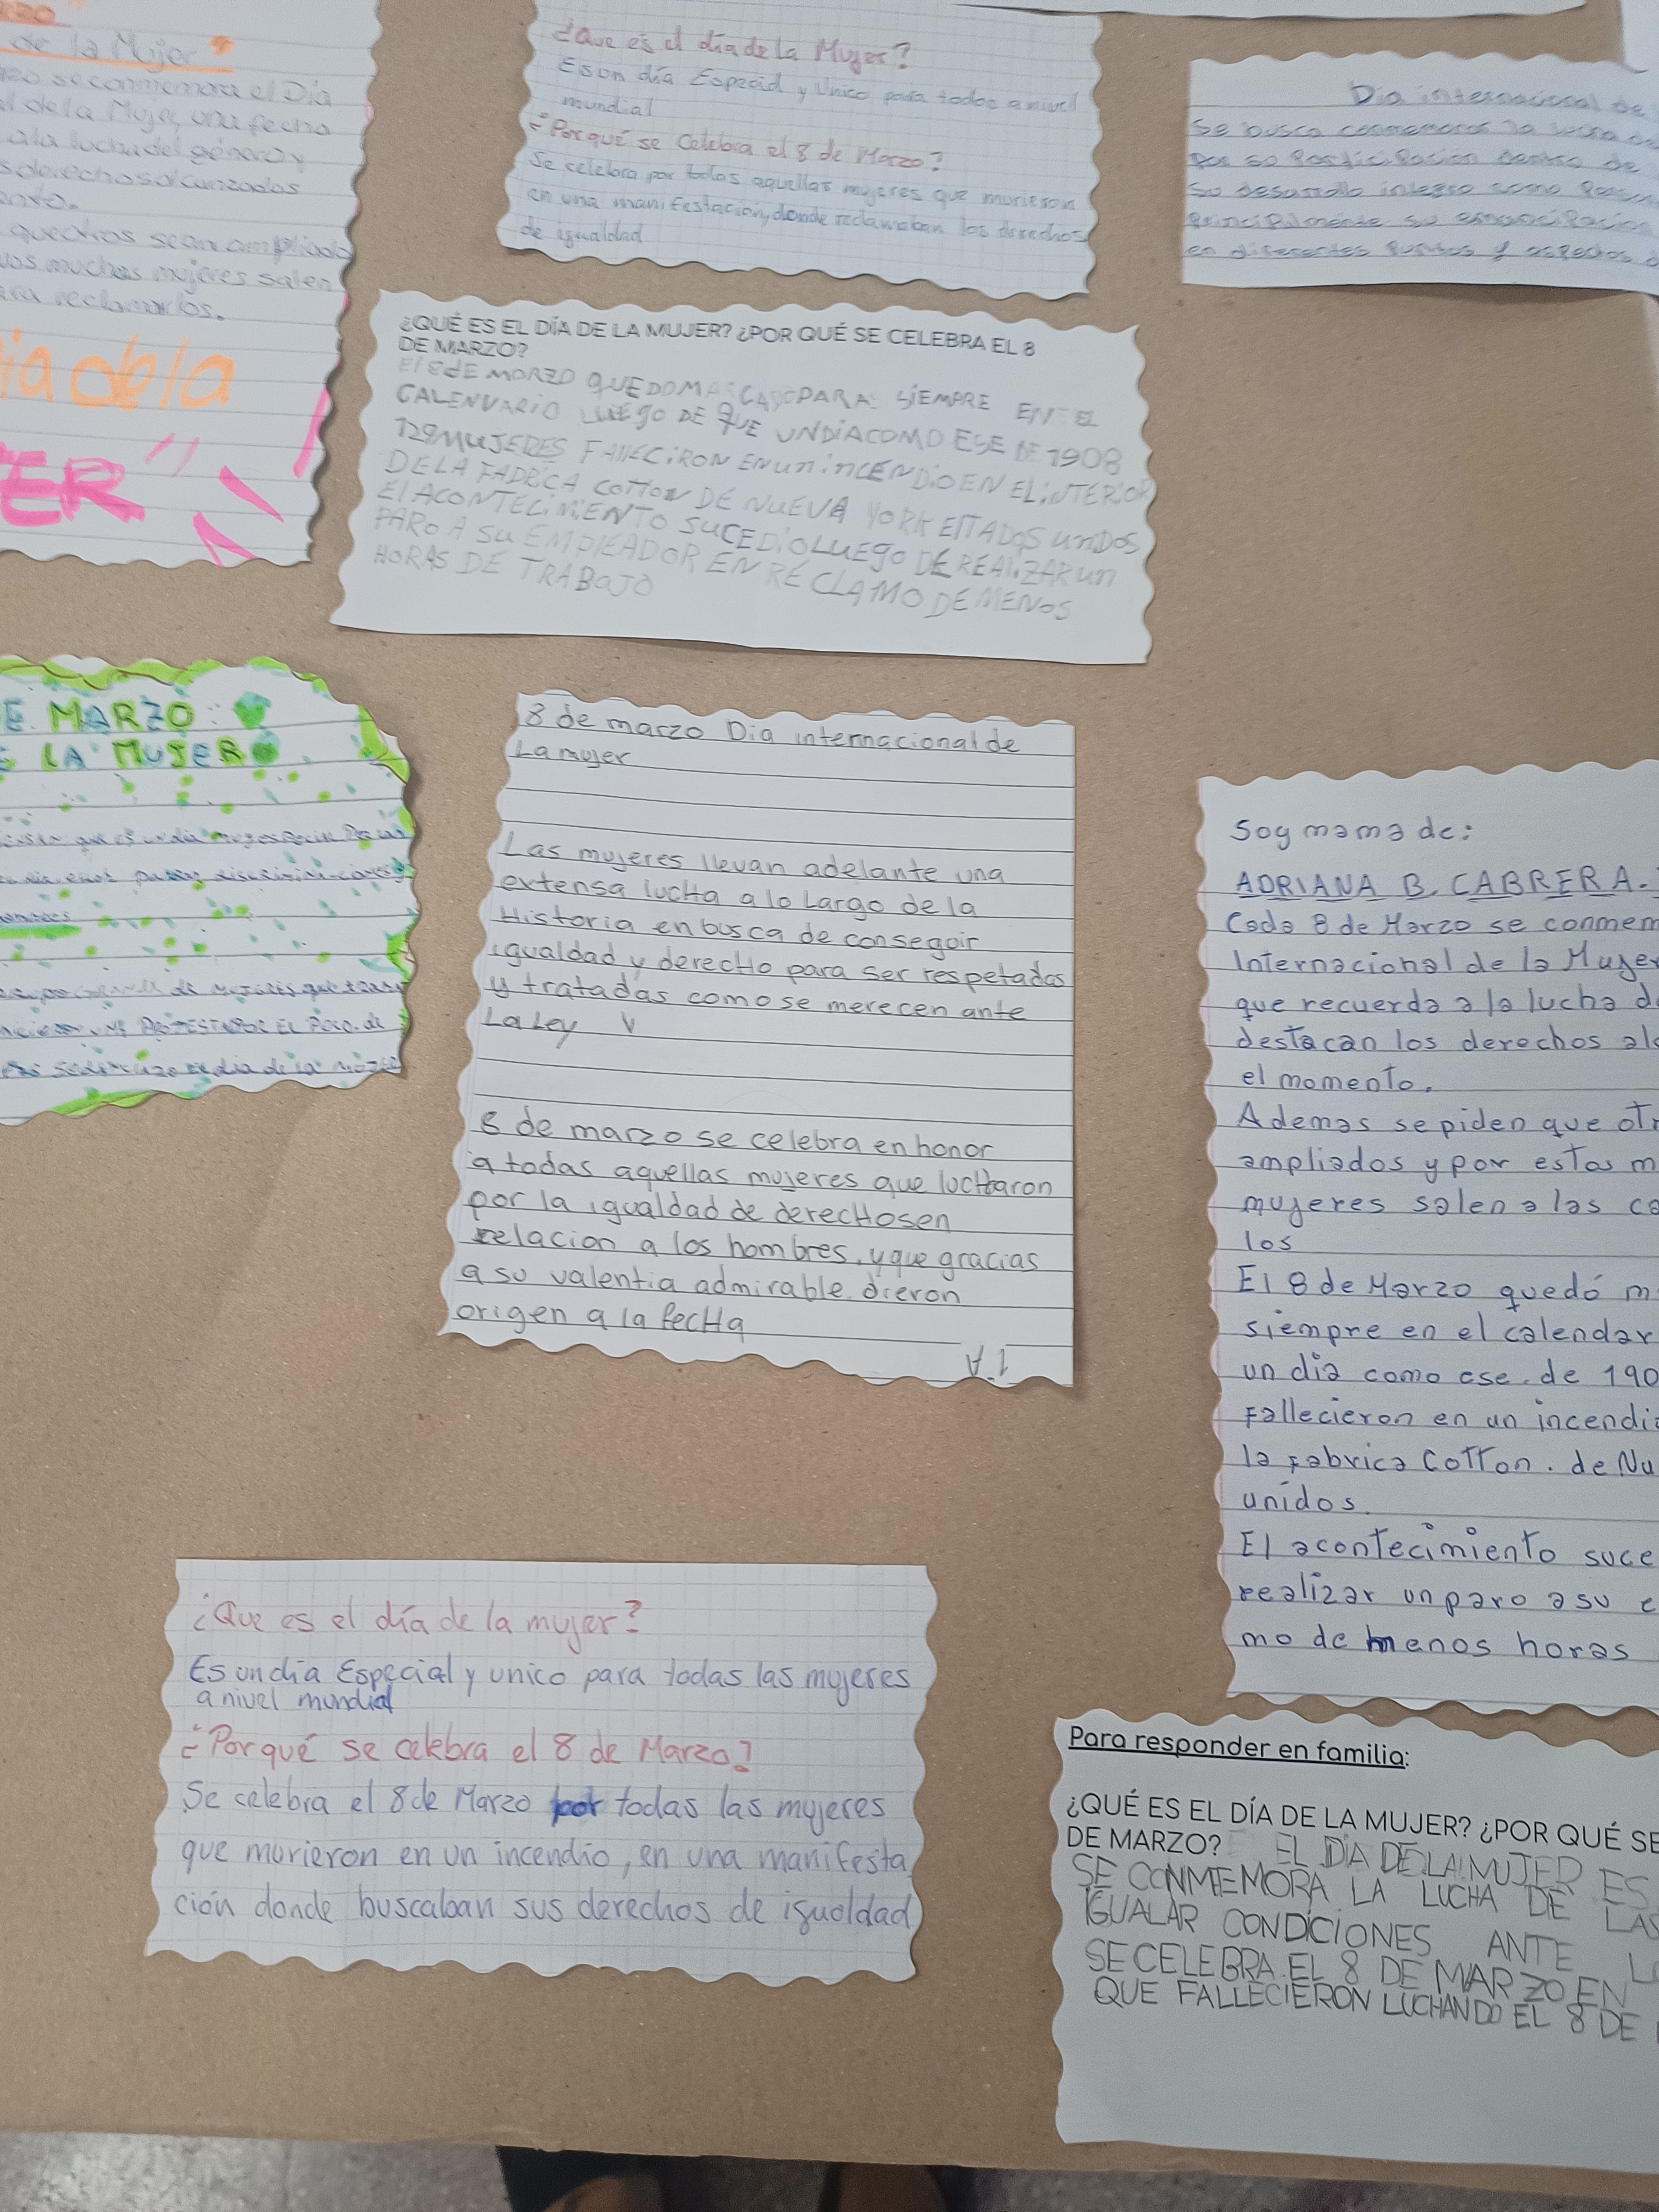 de la Mujer"
se conmemora el Dia
de la Mujer, una fecha
a la lucha del género y
derechos alcanzados
que otros sean ampliado
muchas mujeres salen
reclamarlos.
dia de la
ER"
¿Que es el día de La Mujer?
Es un día Especial y Unico para todas a nivel
mundial
¿Porqué se Celebra el 8 de Marzo?
Se celebra por todas aquellas mujeres que murieron
en una manifestación, donde reclamaban los derechos
de igualdad
Dia internacional de
Se busca conmemorar la lucha de
por so Participación dentro de
So desarrollo integro como Perso
Principalmente su emancipación
en diferentes Puntos y aspectos d
¿QUÉ ES EL DÍA DE LA MUJER? ¿POR QUÉ SE CELEBRA EL 8
DE MARZO?
El 8 dE MORZO QUEDO MARCADO PARA SiEMPRE EN EL
CALENVARiO LUEgO DE QUE UN DiA COMO ESE DE 1908
129 MUJERES FANECiRON EN UN iNCENDiO EN EL iNTERIOR
DE LA FADRiCA COTTON DE NUEVA YORK EITADOS UNiDOS
El ACONTECiMiENTO SUCEDiO LUEgO DE REAliZAR UN
PARO A SU EMPlEADOR EN RECLAMO DE MENOS
HORAS DE TRABAJO
E MARZO
LA MUJER
que es un dia muy especial
discriminaciones
de mujeres que
PROTESTA POR EL
dia de la
8 de marzo Dia internacional de
La mujer
Las mujeres llevan adelante una
extensa lucHa a lo Largo de la
Historia en busca de conseguir
igualdad y derecHo para ser respetadas
y tratadas como se merecen ante
La Ley
8 de marzo se celebra en honor
a todas aquellas mujeres que lucHaron
por la igualdad de derecHos en
relacion a los hombres, y que gracias
a su valentia admirable dieron
origen a la fecHa
1°A
Soy mama de:
ADRIANA B. CABRERA.
Cada 8 de Marzo se conmem
Internacional de la Mujer
que recuerda a la lucha d
destacan los derechos alc
el momento.
Ademas se piden que otr
ampliados y por estas m
mujeres salen a las ca
los
El 8 de Marzo quedó m
siempre en el calendar
un dia como ese de 190
Fallecieron en un incendi
la Fabrica Cotton. de Nu
unidos.
El acontecimiento suce
realizar un paro a su e
mo de menos horas
¿Que es el día de la mujer?
Es un día Especial y unico para todas las mujeres
a nivel mundial
¿Porqué se celebra el 8 de Marzo?
Se celebra el 8 de Marzo por todas las mujeres
que murieron en un incendio, en una manifesta
ción donde buscaban sus derechos de igualdad
Para responder en familia:
¿QUÉ ES EL DÍA DE LA MUJER? ¿POR QUÉ SE
DE MARZO? EL DÍA DE LA MUJER ES
SE CONMEMORA LA LUCHA DE LAS
IGUALAR CONDICIONES ANTE LO
SE CELEBRA EL 8 DE MARZO EN
QUE FALLECIERON LUCHANDO EL 8 DE